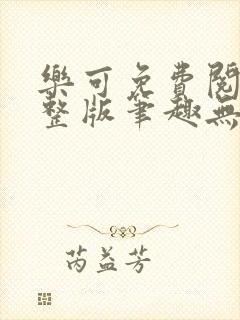 樂可免費閱
整版筆趣無
芮益芳